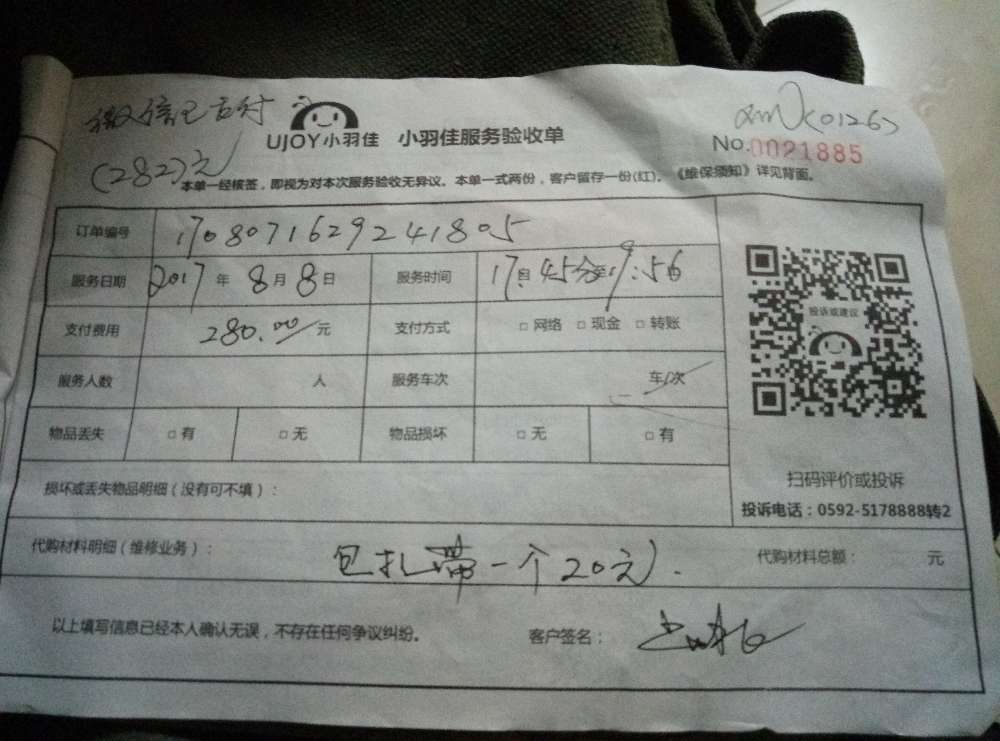 微信已支付
(282)元
UJOY小羽佳 小羽佳服务验收单
xm (0126)
No.0021885
本单一经核签，即视为对本次服务验收无异议。本单一式两份，客户留存一份(红)。《维保须知》详见背面。
订单编号 17080716292241805
服务日期 2017年8月8日 服务时间 17:45分至19:56
支付费用 280.00元 支付方式 □网络 □现金 □转账
服务人数 人 服务车次 车/次
物品丢失 □有 □无 物品损坏 □无 □有
投诉或建议
扫码评价或投诉
投诉电话：0592-5178888转2
损坏或丢失物品明细（没有可不填）：
代购材料明细（维修业务）： 包扎带一个20元. 代购材料总额： 元
以上填写信息已经本人确认无误，不存在任何争议纠纷。 客户签名：